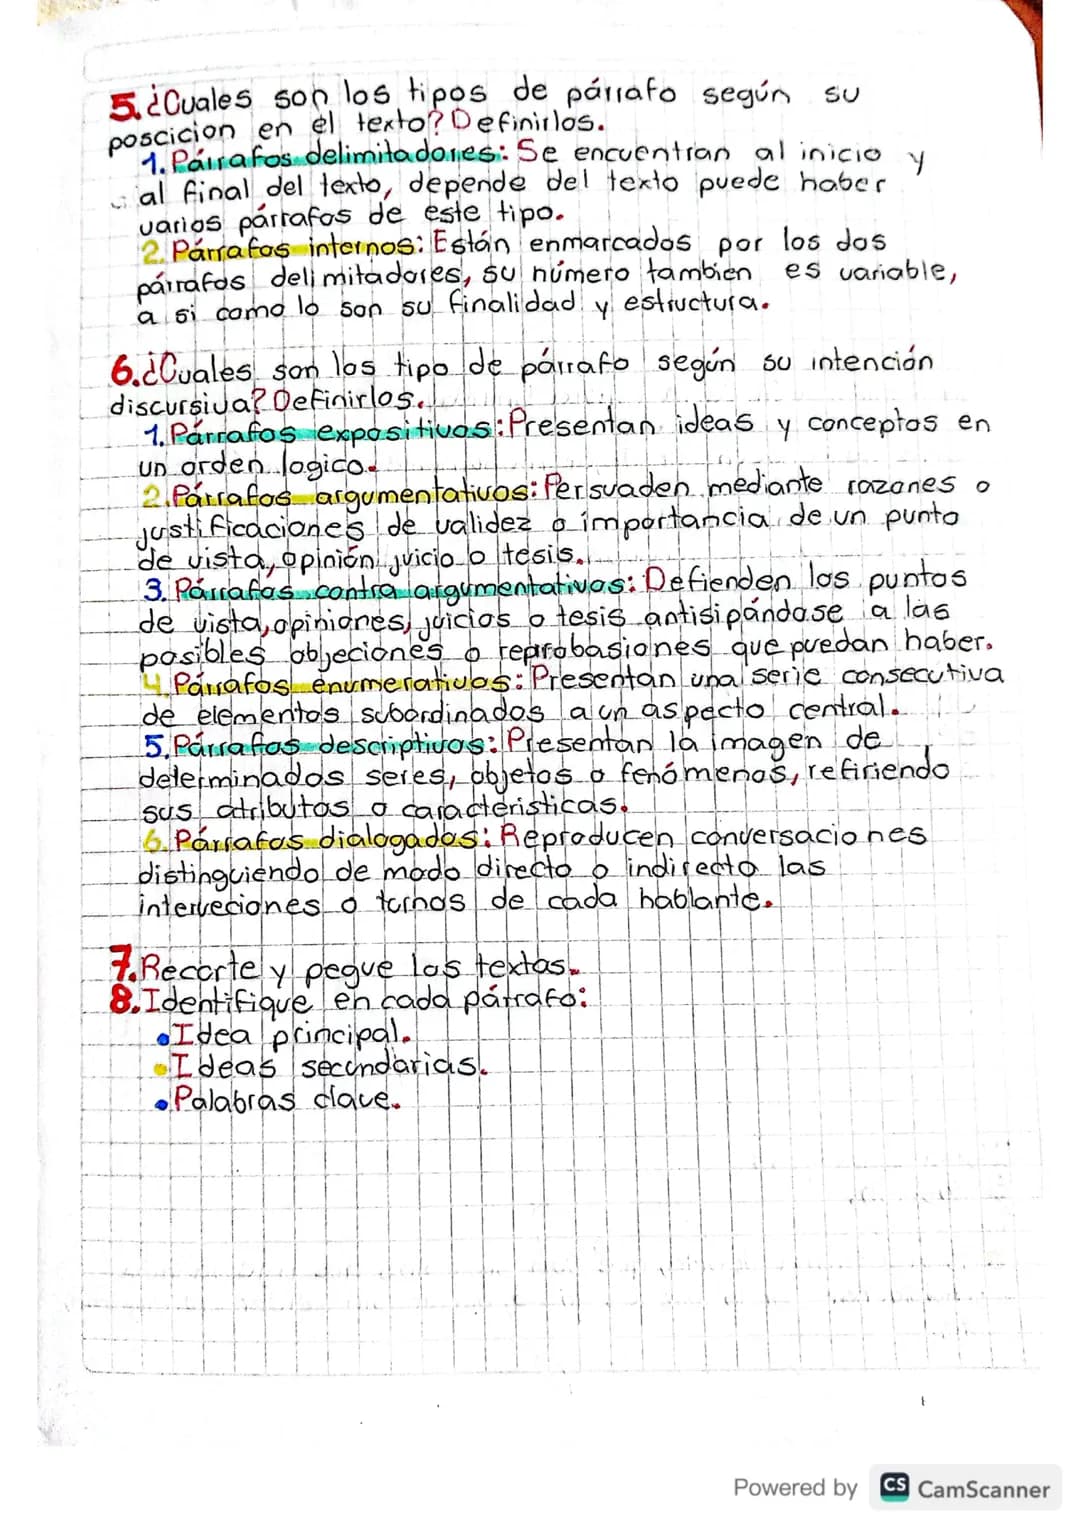 5.¿Cuales son los tipos de párrafo según su
poscicion en el texto? Definirlos.
1. Párrafos delimitadores: Se encuentran al inicio y
al final del texto, depende del texto puede haber
varios párrafos de este tipo.
2. Párrafos internos: Están enmarcados por los dos
párrafos delimitadores, su número tambien es variable,
a si como lo son su finalidad y estructura.
6.¿Cuales son los tipo de párrafo según su intención
discursiva? Definirlos.
1. Párrafos expositivos: Presentan ideas y conceptos en
un orden logico.
2. Párrafos argumentativos: Persuaden mediante razones o
justificaciones de validez o importancia de un punto
de vista, opinión, juicio o tesis.
3. Párrafos contra argumentativos: Defienden los puntos
de vista, opiniones, juicios o tesis antisipándose a las
posibles objeciones o reprobasiones que puedan haber.
4. Párrafos enumerativos: Presentan una serie consecutiva
de elementos subordinados a un aspecto central.
5. Párrafos descriptivos: Presentan la imagen de
determinados seres, objetos o fenómenos, refiriendo
sus atributos o características.
6. Párrafos dialogados: Reproducen conversaciones
distinguiendo de modo directo o indirecto las
interveciones o turnos de cada hablante.
7. Recorte y pegue los textos.
8. Identifique en cada párrafo:
• Idea principal.
• Ideas secundarias.
• Palabras clave.
Powered by CS CamScanner